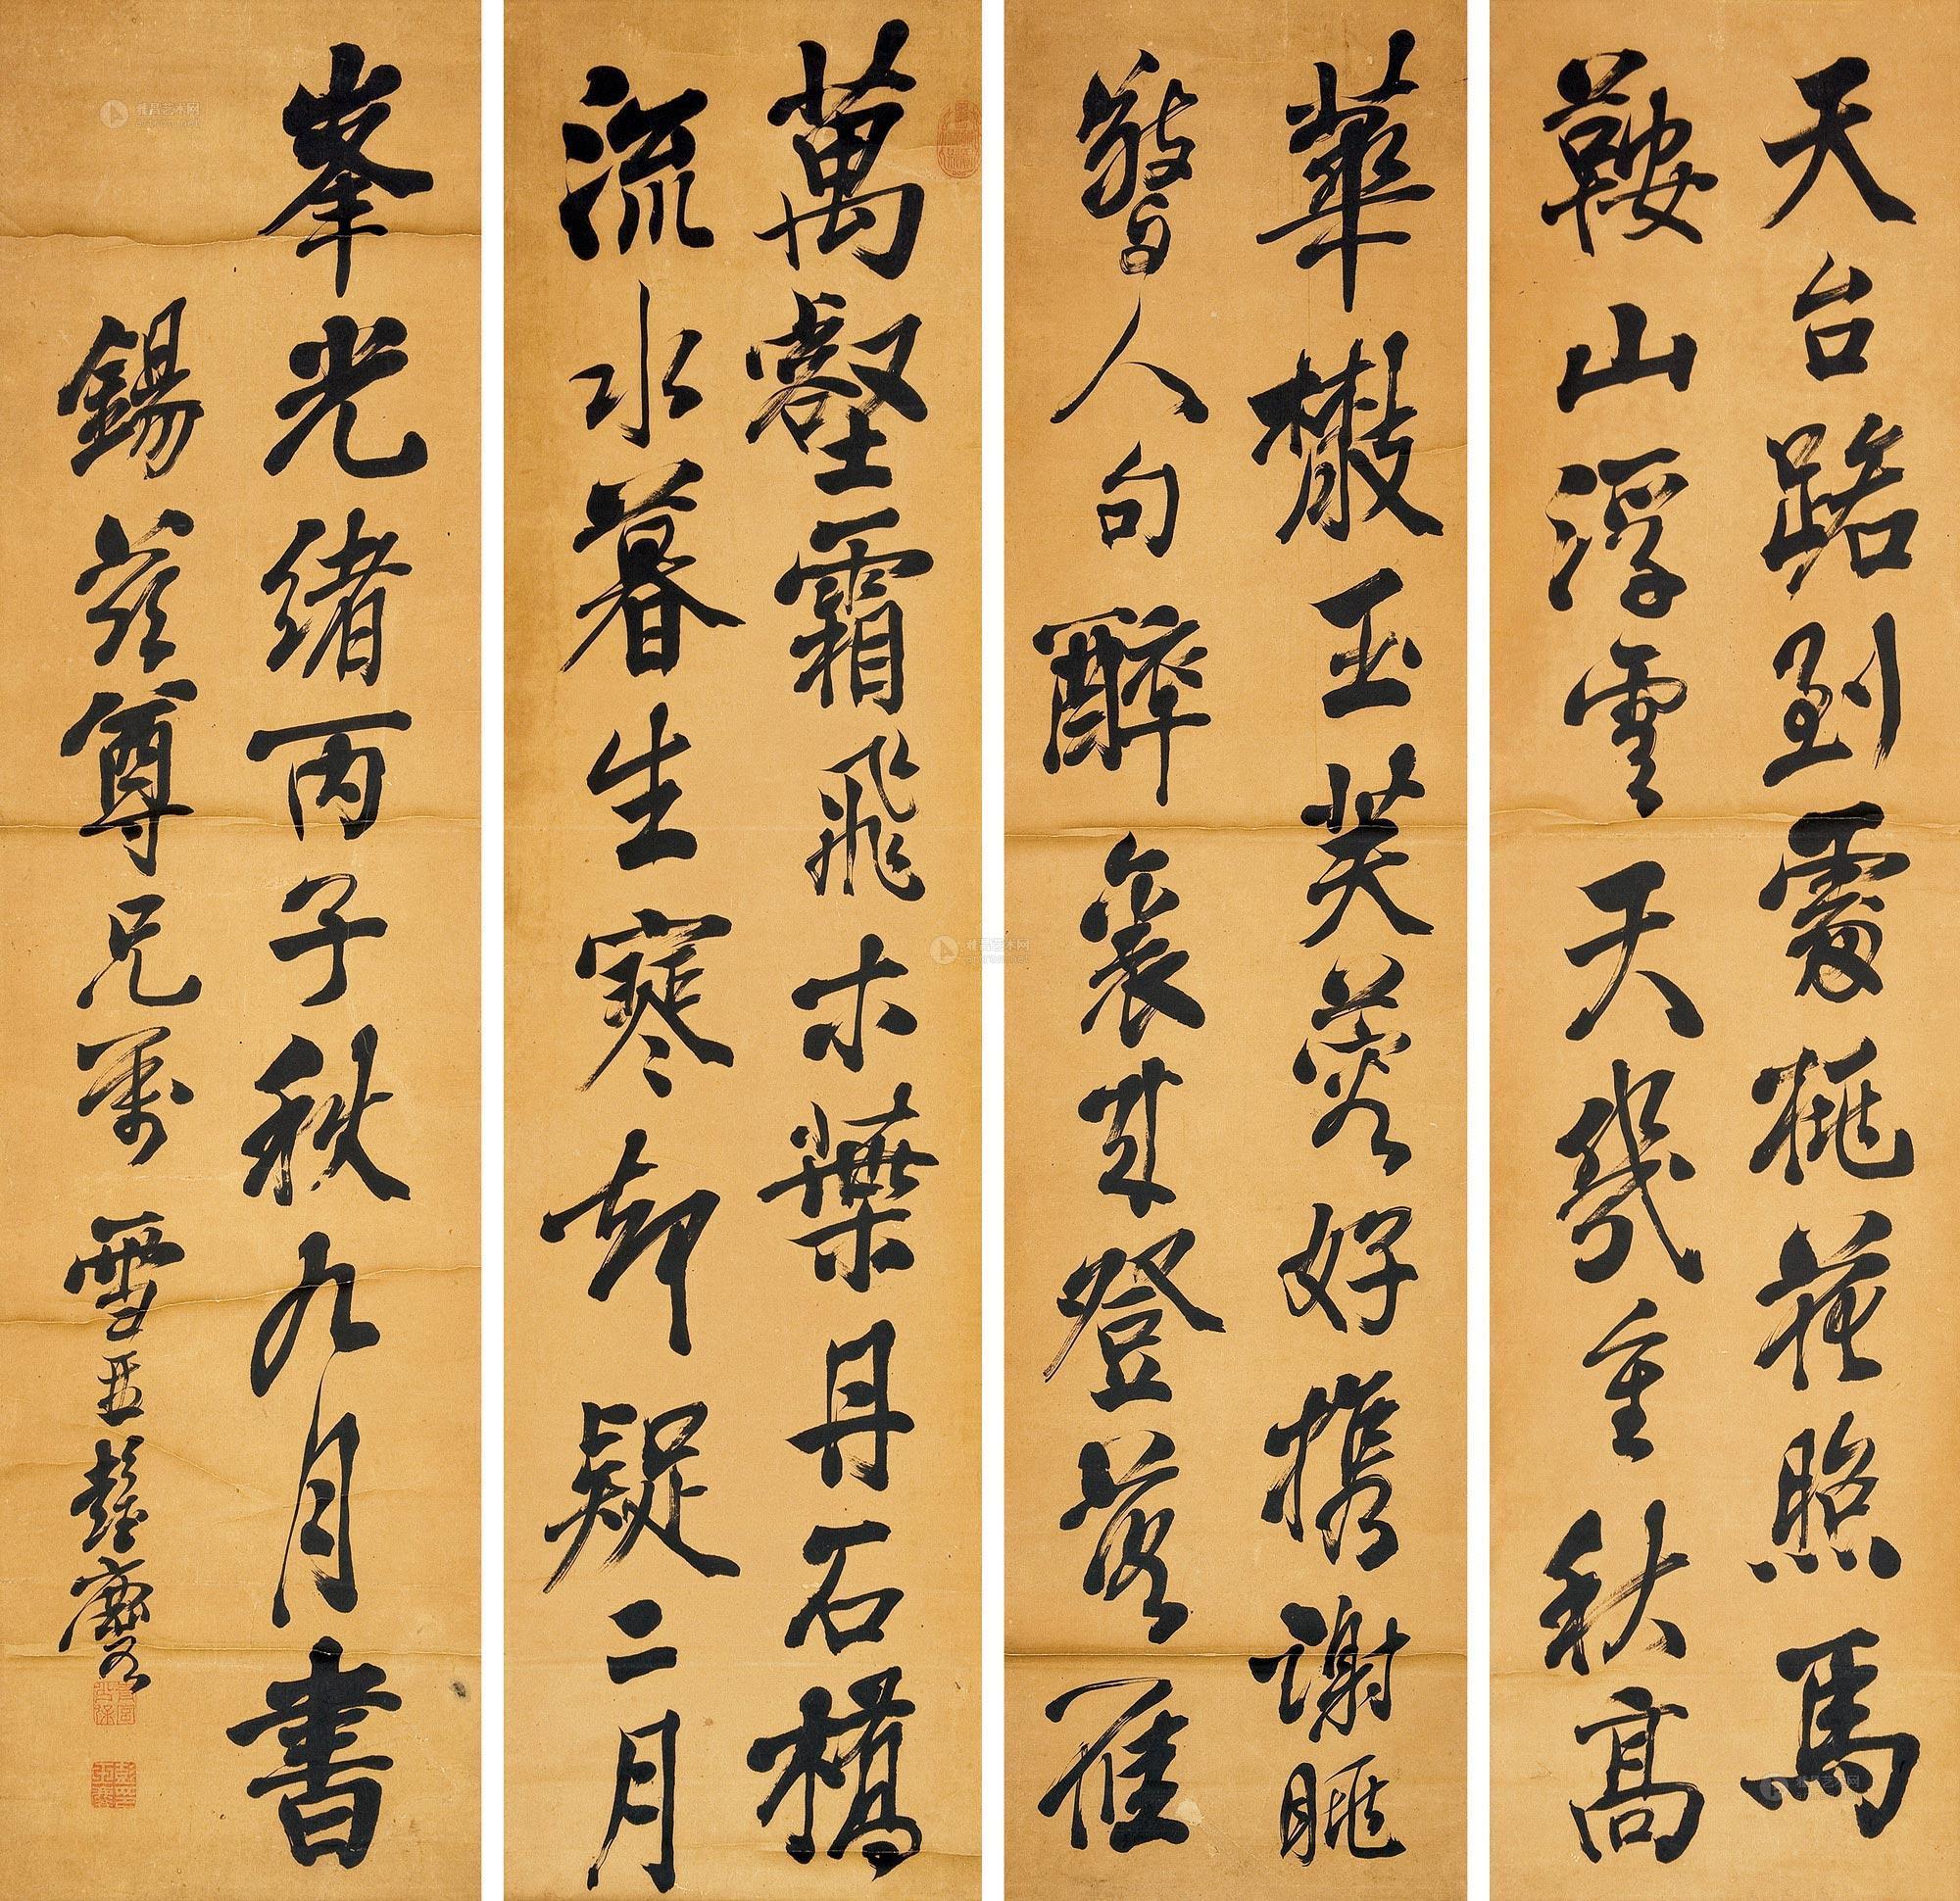 天台路到處桃花照馬
鞍山浮雲天幾重秋高
華橵玉芙蓉好携謝眺
警人句醉裏來登落雁
萬壑霜飛木葉丹石橋
流水暮生寒却疑二月
峯光緒丙子秋九月書
錫茲尊兄屬 雪琴彭玉麐